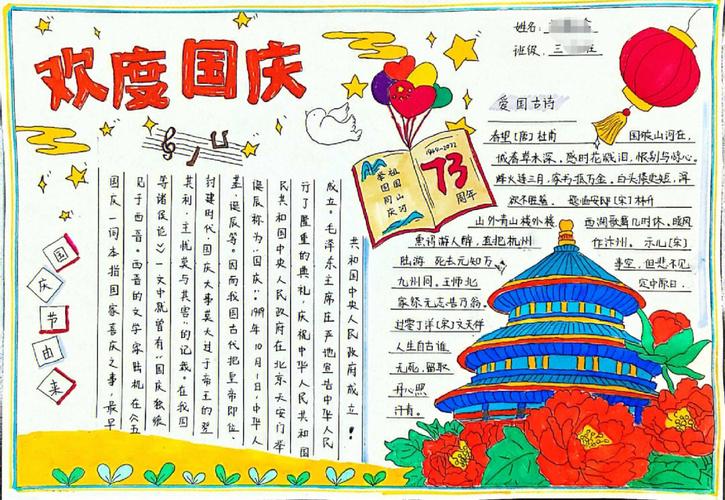 欢度国庆
姓名:
班级: 三
国庆节由来
国庆一词本指国家喜庆之事，最早
见于西晋。西晋的文学家陆机在《五
等诸侯论》一文中就曾有"国庆独飨
其利，主忧莫与其害"的记载。在我国
封建时代，国庆大事莫大过于帝王的登
基、诞辰等。因而我国古代把皇帝即位、
诞辰称为"国庆"。1949年10月1日，中华人
民共和国中央人民政府在北京天安门举
行了隆重的典礼，庆祝中华人民共和国
成立。毛泽东主席庄严地宣告中华人民
共和国中央人民政府成立！
祖国山河
举国同庆
1949-2022
73
周年
爱国古诗
春望[唐]杜甫 国破山河在，
城春草木深。感时花溅泪，恨别鸟惊心。
烽火连三月，家书抵万金。白头搔更短，浑
欲不胜簪。 题临安邸[宋]林升
山外青山楼外楼， 西湖歌舞几时休。暖风
熏得游人醉，直把杭州 作汴州。 示儿[宋]
陆游 死去元知万 事空，但悲不见
九州同。王师北 定中原日，
家祭无忘告乃翁。
过零丁洋[宋]文天祥
人生自古谁
无死，留取
丹心照
汗青。